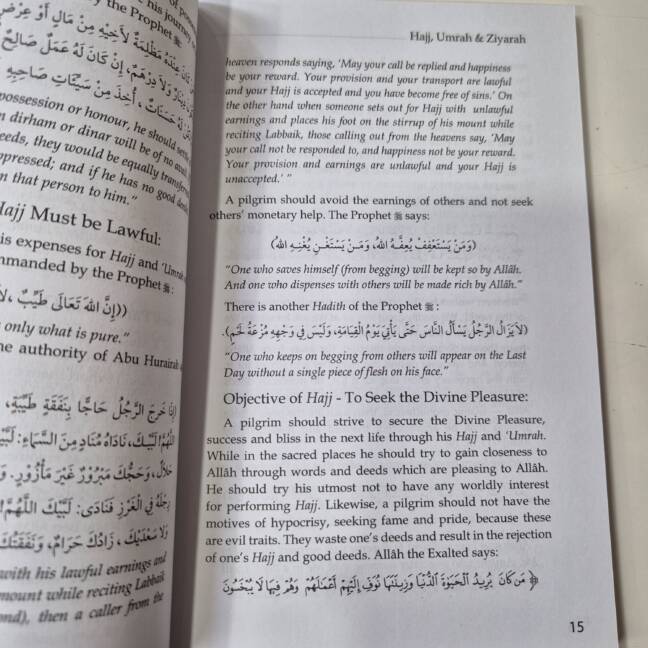 his journey
of
by the Prophet ﷺ:
عِنْدَهُ مَظْلِمَةٌ لأَخِيْهِ مِنْ مَالٍ أَوْ عِرْضٍ
وَلاَ دِرْهَمٌ، إِنْ كَانَ لَهُ عَمَلٌ صَالِحٌ
لَهُ حَسَنَاتٌ، أُخِذَ مِنْ سَيِّئَاتِ صَاحِبِهِ
possession or honour, he should
dirham or dinar will be of no avail
they would be equally
and if he has no good
that person to him.”
Hajj Must be Lawful:
expenses for Hajj and ‘Umrah
by the Prophet ﷺ:
((إِنَّ اللهَ تَعَالَى طَيِّبٌ،
only what is pure.”
authority of Abu Hurairah
إِذَا خَرَجَ الرَّجُلُ حَاجًّا بِنَفَقَةٍ طَيِّبَةٍ،
اللَّهُمَّ! لَبَّيْكَ، نَادَاهُ مُنَادٍ مِنَ السَّمَاءِ: لَبَّيْكَ
حَلاَلٌ، وَحَجُّكَ مَبْرُوْرٌ غَيْرَ مَأْزُوْرٍ.
رِجْلَهُ فِي الْغَرْزِ فَنَادَى: لَبَّيْكَ اللَّهُمَّ!
وَلاَ سَعْدَيْكَ، زَادُكَ حَرَامٌ، وَنَفَقَتُكَ
with his lawful earnings and
mount while reciting Labbaik
then a caller from the
Hajj, Umrah & Ziyarah
heaven responds saying, ‘May your call be replied and happiness
be your reward. Your provision and your transport are lawful
and your Hajj is accepted and you have become free of sins.’ On
the other hand when someone sets out for Hajj with unlawful
earnings and places his foot on the stirrup of his mount while
reciting Labbaik, those calling out from the heavens say, ‘May
your call not be responded to, and happiness not be your reward.
Your provision and earnings are unlawful and your Hajj is
unaccepted.’ ”
A pilgrim should avoid the earnings of others and not seek
others’ monetary help. The Prophet ﷺ says:
(وَمَنْ يَسْتَعْفِفْ يُعِفَّهُ اللهُ، وَمَنْ يَسْتَغْنِ يُغْنِهِ اللهُ)
“One who saves himself (from begging) will be kept so by Allâh.
And one who dispenses with others will be made rich by Allâh.”
There is another Hadith of the Prophet ﷺ:
(لاَ يَزَالُ الرَّجُلُ يَسْأَلُ النَّاسَ حَتَّى يَأْتِيَ يَوْمَ الْقِيَامَةِ، وَلَيْسَ فِي وَجْهِهِ مُزْعَةُ لَحْمٍ).
“One who keeps on begging from others will appear on the Last
Day without a single piece of flesh on his face.”
Objective of Hajj - To Seek the Divine Pleasure:
A pilgrim should strive to secure the Divine Pleasure,
success and bliss in the next life through his Hajj and ‘Umrah.
While in the sacred places he should try to gain closeness to
Allâh through words and deeds which are pleasing to Allâh.
He should try his utmost not to have any worldly interest
for performing Hajj. Likewise, a pilgrim should not have the
motives of hypocrisy, seeking fame and pride, because these
are evil traits. They waste one’s deeds and result in the rejection
of one’s Hajj and good deeds. Allâh the Exalted says:
﴿ مَن كَانَ يُرِيدُ الْحَيَوٰةَ الدُّنْيَا وَزِينَتَهَا نُوَفِّ إِلَيْهِمْ أَعْمَٰلَهُمْ فِيهَا وَهُمْ فِيهَا لَا يُبْخَسُونَ
15